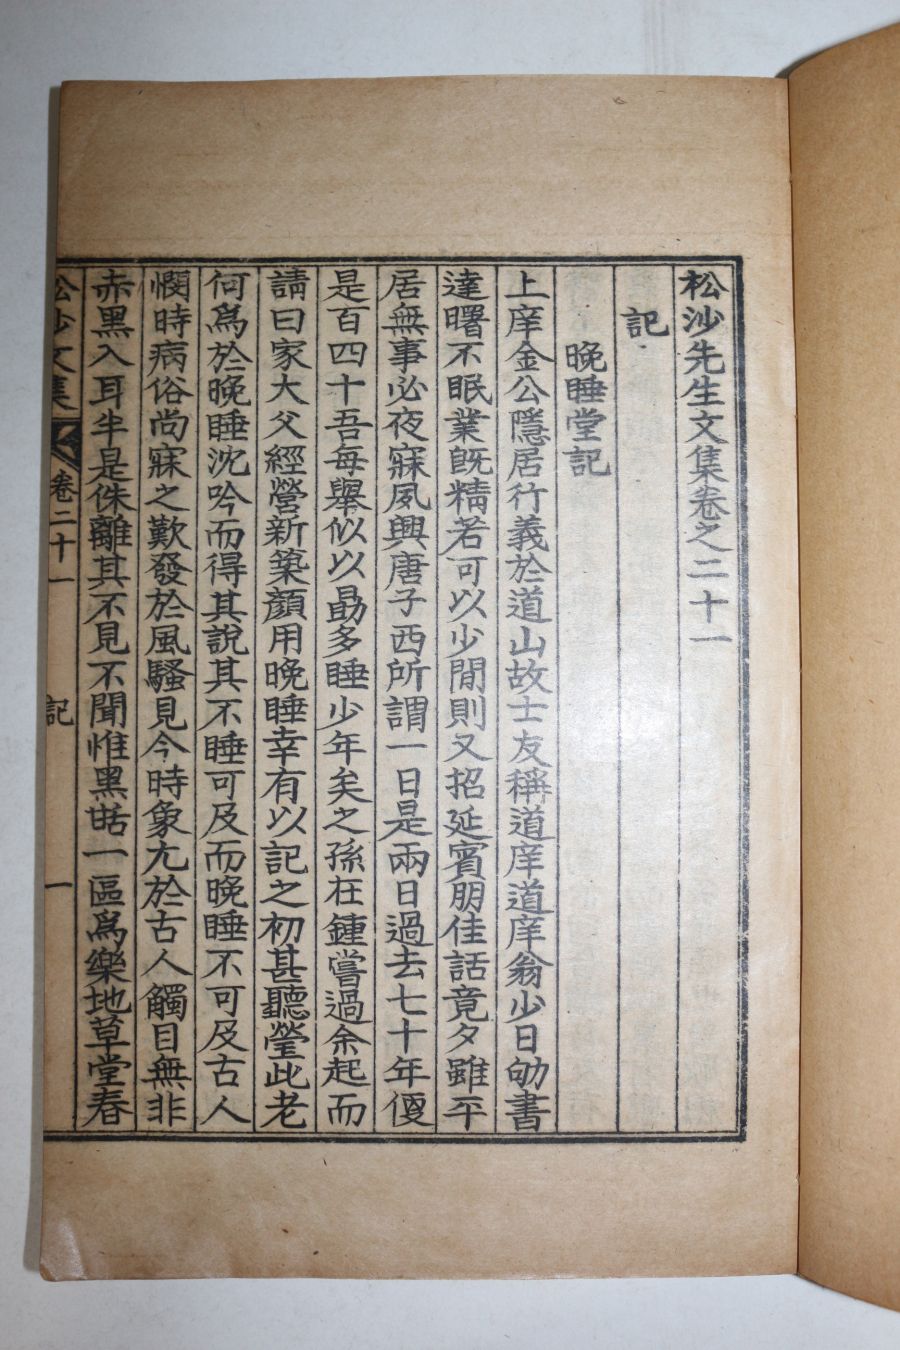 松沙先生文集卷之二十一
記
晩睡堂記
上庠金公隱居行義於道山故士友稱道庠道庠翁少日劬書
達曙不眠業旣精若可以少閒則又招延賓朋佳話竟夕雖平
居無事必夜寐夙興唐子西所謂一日是兩日過去七十年便
是百四十吾每擧似以勗多睡少年矣之孫在鍾嘗過余起而
請曰家大父經營新築顏用晩睡幸有以記之初甚聽瑩此老
何爲於晩睡沈吟而得其說其不睡可及而晩睡不可及古人
憫時病俗尚寐之歎發於風騷見今時象尢於古人觸目無非
赤黑入耳半是侏離其不見不聞惟黑甛一區爲樂地草堂春
松沙文集
卷二十一
記
一